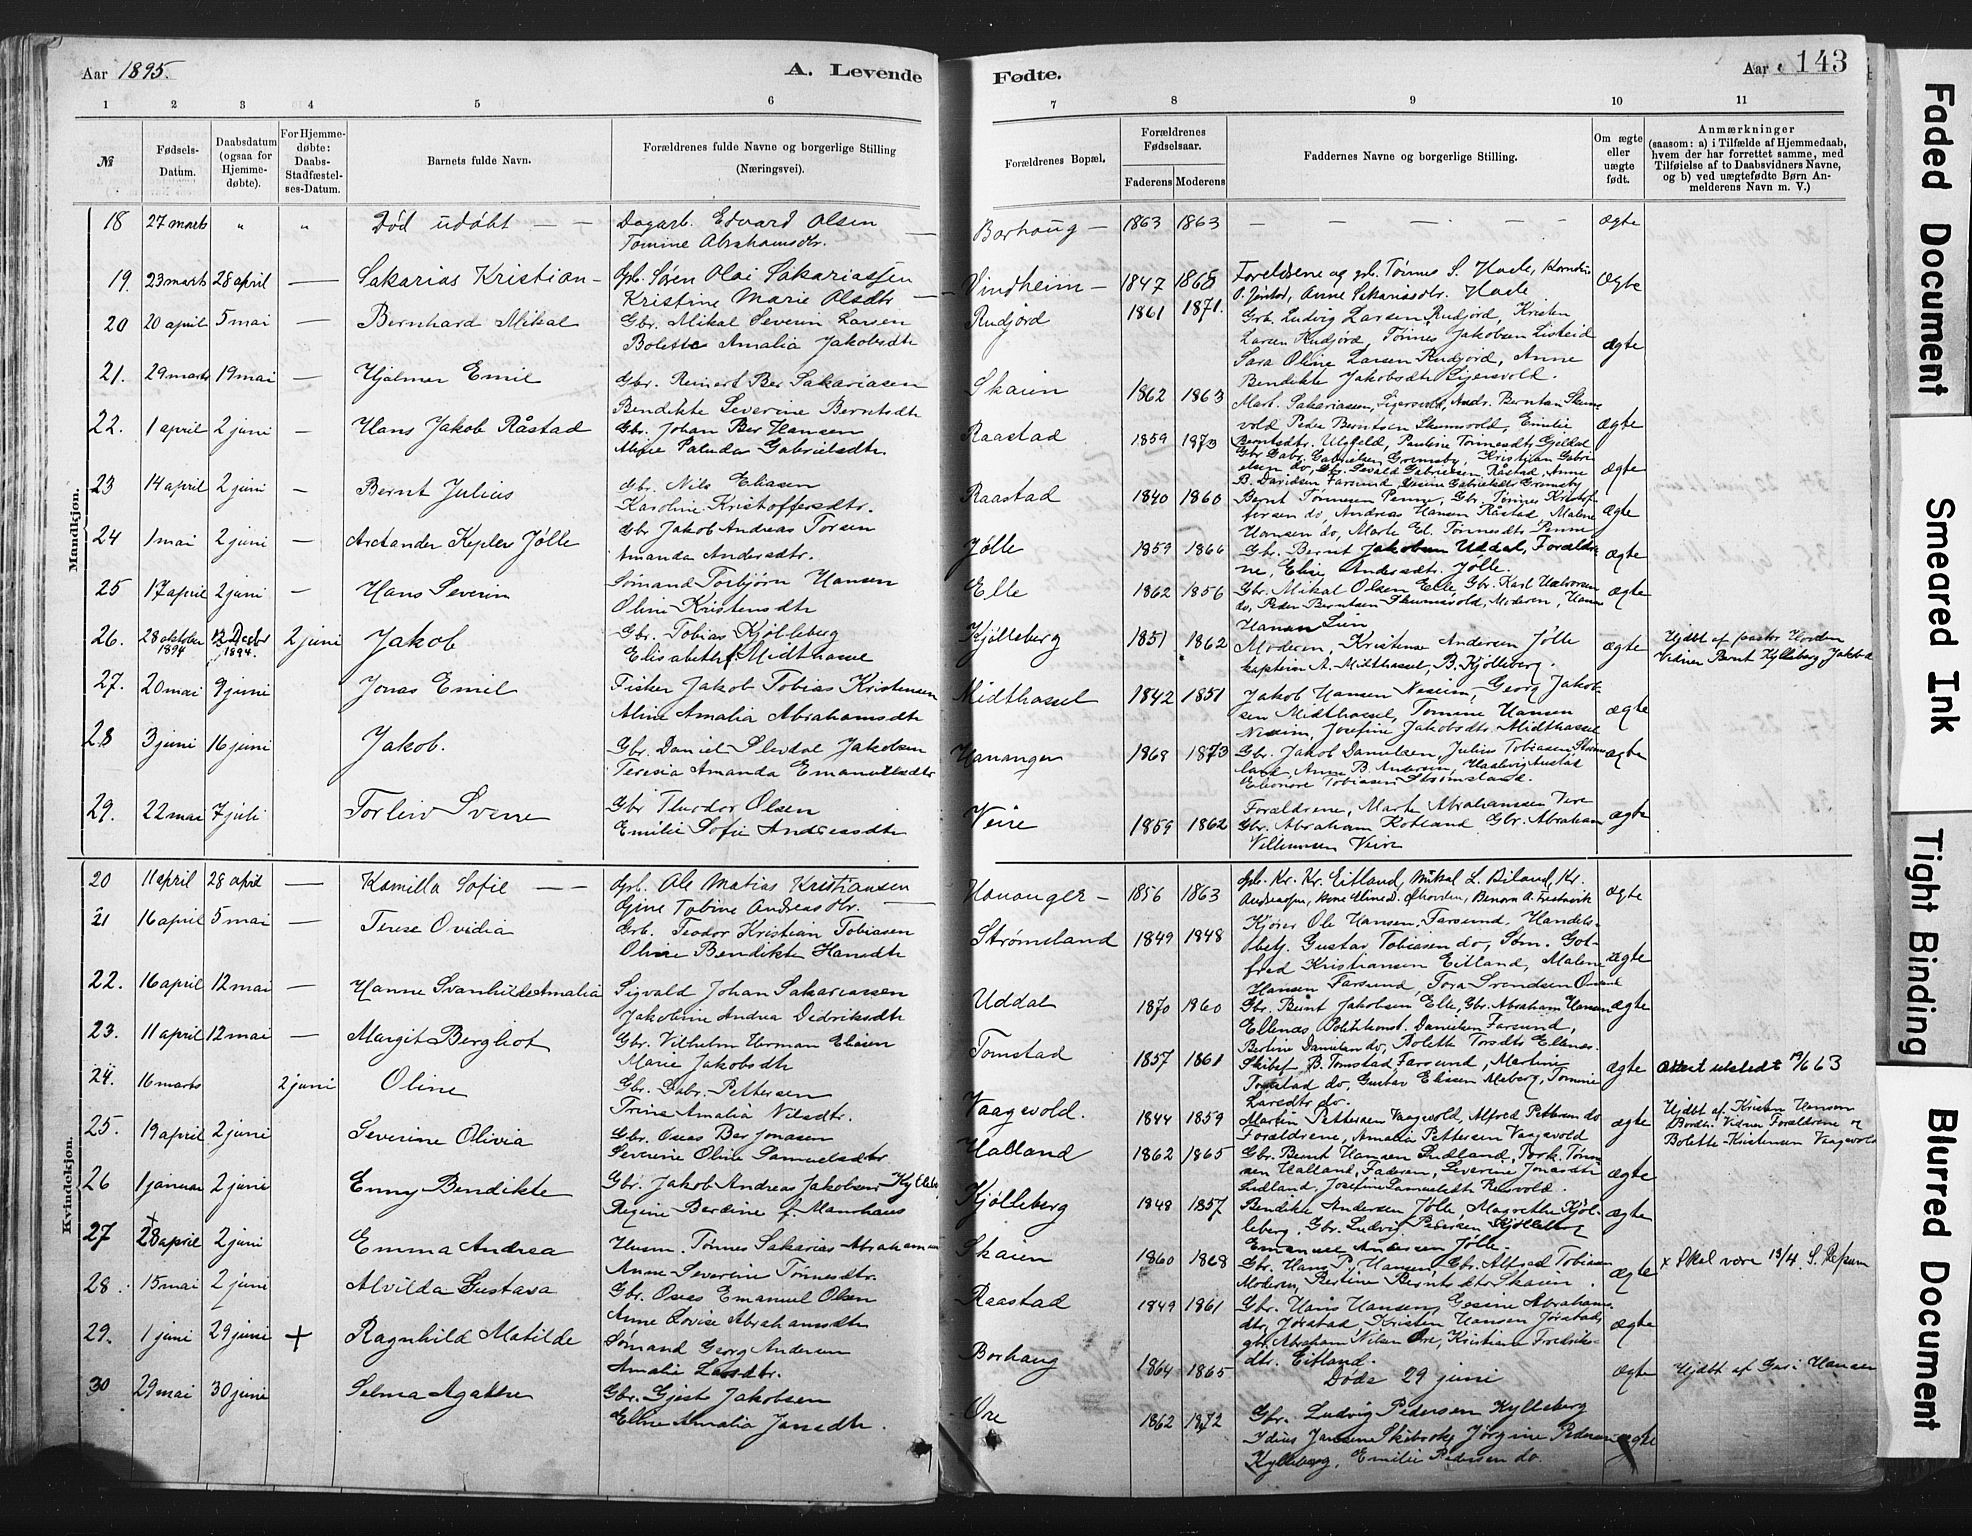 Aar 1895.
A. Levende
1 2 3 4 5 6
№
Fødsels-Datum.
Daabsdatum (ogsaa for Hjemme-døbte).
For Hjemme-døbte: Daabs-Stadfæstel-ses-Datum.
Barnets fulde Navn.
Forældrenes fulde Navne og borgerlige Stilling
(Næringsvei).
Mandkjøn.
18 27 marts " " Død udøbt — Dagarb. Edvard Olsen
Tomine Abrahamsdtr.
19. 23 marts 28 april — Sakarias Kristian — Gbr. Søren Olai Sakariassen
Kristine Marie Olsdtr
20 20 april 5 mai — Bernhard Mikal Gbr. Mikal Severin Larsen
Bolette Amalia Jakobsdtr
21. 29 marts 19 mai — Hjalmer Emil Gbr. Reinert Ber Sakariasen
Bendikte Severine Berntsdtr
22. 1 april 2 juni — Hans Jakob Råstad Gbr. Johan Ber Hansen
Gabrielsdtr
23 14 april 2 juni — Bernt Julius Gbr. Nils Eliasen
Karoline Kristoffersdtr.
24 1 mai 2 juni — Arctander Kepler Jølle Gbr Jakob Andreas Torsen
Amanda Andersdtr.
25 17 april 2 juni — Hans Severin Sømand Torbjørn Hansen
Oline Kristensdtr
26. 28 oktober 1894 12 Decbr 1894. 2 juni Jakob Gbr. Tobias Kjølleberg
Elisabeth f. Midthassel
27. 20 mai 9 juni Jonas Emil Fisker Jakob Tobias Kristensen
Aline Amalia Abrahamsdtr
28 3 juni 16 juni Jakob. Gbr. Daniel Slevdal Jakobsen
Teresia Amanda Emanuelsdtr
29. 22 mai 7 juli Torleiv Svenn Gbr Theodor Olsen
Emilie Sofie Andreasdtr
Kvindekjøn.
20 11 april 28 april — Kamilla Sofie — — Gbr. Ole Matias Kristiansen
Gine Tobine Andreasdtr.
21 16 april 5 mai — Terese Ovidia Grb. Teodor Kristian Tobiasen
Oline Bendikte Hansdtr
22. 16 april 12 mai — Hanne Svanhilde Amalia Sigvald Johan Sakariassen
Jakobine Andrea Didriksdtr
23. 11 april 12 mai — Margit Bergliot Gbr. Vilhelm Herman Eliasen
Marie Jakobsdtr
24. 16 marts 2 juni Oline Gbr. Gabr. Pettersen
Trine Amalia Nilsdtr.
25. 19 april 2 juni Severine Olivia Gbr. Oseas Ber Jonasen
Severine Oline Samuelsdtr
26 1 januar 2 juni Enny Bendikte Gbr. Jakob Andreas Jakobsen Kylleberg
Regine Berdine f. Mannhaus
27 + 28 april 2 juni Emma Andrea Husm. Tønnes Sakarias Abrahamsen
Anne Severine Tønnesdtr.
28. 15 mai 2 juni Alvilda Gustava Gbr. Oseas Emanuel Olsen
Anne Lovise Abrahamsdtr
29. 1 juni 29 juni + Ragnhild Matilde Sømand Georg Andersen
Amalie Larsdtr.
30 29 mai 30 juni Selma Agathe Gbr. Gjert Jakobsen
Elline Amalia Jansdtr.
Fødte.
Aar 143
7 8 9 10 11
Forældrenes Bopæl.
Forældrenes Fødselsaar.
Faderens Moderens
Faddernes Navne og borgerlige Stilling.
Om ægte eller uægte født.
Anmærkninger
(saasom: a) i Tilfælde af Hjemmedaab,
hvem der har forrettet samme, med
Tilføielse af to Daabsvidners Navne,
og b) ved uægtefødte Børn An-
melderens Navn m. V.)
Borhoug — 1863 1863 — — — — — ægte
Vindheim — 1847 1865 Foreldrene og gb. Tønnes S. Haele, ægte
Anne Sakariasdtr. Haele
Rudjord 1861 1871. Grb. Ludvig Larsen Rudjord, Kristen
Larsen Rudjord, Tønnes Jakobsen Listeid ægte
Sara Oline Larsen Rudjord, Anne
Bendikte Jakobsdtr Sigersvold.
Skaien 1862 1863 Mart. Sakariassen, Sigersvold, Andr. Berntsen Skums
vold, Peder Berntsen Skumsvold, Emilie ægte
Raastad 1859 1973 Berntsdtr. Ulgjeld, Pauline Tønnesdtr Gjeldal
Gbr Gabr. Gabrielsen Grømsby, Kristian Gabri
elsen do, Gbr. Sevald Gabrielsen Råstad, Anne ægte
B. Davidsen Farsund, Gabrielsdtr Grimsby
Raastad 1840 1860 Bernt Tønnesen Penne, Gbr. Tønnes Kristof
fersen do, Andreas Hansen Råstad, Malene ægte
Hansen do, Marte El. Tønnesdtr Penne
Jølle 1859 1866 Gbr. Bernt Jakobsen Uddal, Forældre
ne, Elise Andersdtr. Jølle. ægte
Elle 1862 1856 Gbr. Mikal Olsen Elle, Gbr. Karl Halvorsen
do, Peder Berntsen Skumsvold, Moderen, Hanna ægte
Hansen Lein
Kjølleberg 1851 1862 Moderen, Kristense Andersen Jølle ægte
kaptein A. Midthassel, B. Kjølleberg.
Hjdbt af pastor Horden
Vidner Bernt Kylleberg Jakob d
Midthassel 1842 1851 Jakob Hansen Neseim, Georg Jakob-
sen Midthassel, Tomine Hansen ægte
Neseim, Josefine Jakobsdtr. Midthassel
Hananger 1868 1873 Gbr. Jakob Danielsen, Julius Tobiasen Strøms
land, Anne B. Andersen, ægte
Eleonore Tobiasen Strømsland.
Veire 1859 1862 Forældrene, Marte Abrahamsen Vere
Gbr. Abraham Kotland Gbr. Abraham ægte
Villumsen Veire
Hananger — 1856 1863 Gbr. Kr. Kr. Eitland, Mikal L. Biland, Kr. ægte
Strømsland 1849 1848 Kjører Ole Hansen, Farsund, Handels-
betj. Gustav Tobiasen do, Søm. Got-
fred Kristiansen Eitland, Malene ægte
Hansen Farsund, Tora Svendsen
Uddal 1870 1860 Gbr. Bernt Jakobsen Elle, Gbr. Abraham Hansen ægte
Ellenæs Politikonst. Danielsen Farsund,
Bertine Danielsen do, Bolette Torsdtr Ellenes.
Tomstad 1857 1861 Skibsf. B. Tomstad, Farsund, Martine ægte
Tomstad do, Gustav Eliasen Meberg, Tomine
Larsdtr do.
Attest utstedt 19/6 63
Vaagsvold. 1844 1859 Martin Pettersen Vaagsvold, Alfred Pettersen do ægte
Forældrene, Amalia Pettersen Vaagsvold
Hjdbt af Kristen Hansen
Vidner Forældrene og
Bolette Kristensen Vaagsvold
Halland 1862 1865 Gbr. Bernt Hansen Lidland, Tork. Tønne
sen Halland, Faderen, Severine Jonasdtr ægte
Lidland, Josefine Samuelsdtr
Kjølleberg 1848 1857 Bendikte Andersen Jølle, Magrethe Kjøl-
leberg, Gbr. Ludvig Pedersen Kjølleberg ægte
Emanuel Andersen Jølle.
Skaien 1860 1868 Gbr. Hans P. Hansen, Gbr. Alfred Tobiasen
Moderen, Bertine Berntsdtr Skaien. ægte
x Skal være 13/4. S. Repsum
Raastad 1849 1861 Gbr. Hans Hansen, Gesine Abrahams
dtr, Jørstad, Kristen Hansen Jørstad, ægte
gbr. Abraham Nilsen Øre, Kristiane Fredriks-
dtr. Eitland.
Borhaug 1864 1865 Døde 29 juni ægte Hjdbt af Guri Hansen
Øre 1862 1872 Gbr. Ludvig Pedersen Kylleberg
Jørgine Pedersen ægte
Kylleberg, Emilie Pedersen do.
Faded Document
Smeared Ink
Tight Binding
Blurred Document